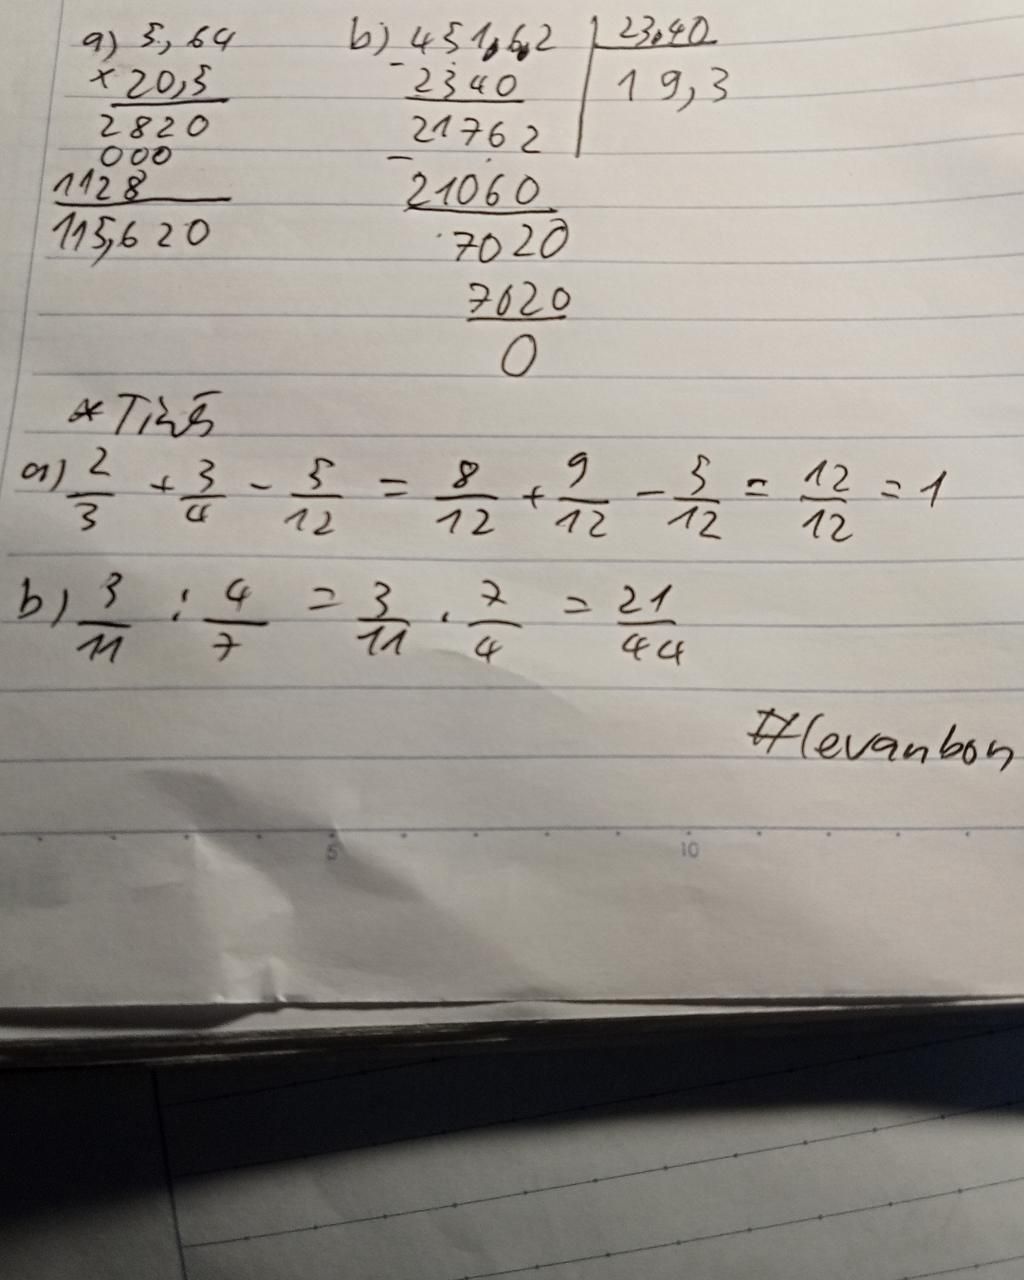 a) 5,64
× 20,5
2820
000
1128
115,620
b) 451,6,2 | 23,40
- 2340 | 19,3
21762
- 21060
7020
7020
0
* Tính
a) 2/3 + 3/4 - 5/12 = 8/12 + 9/12 - 5/12 = 12/12 = 1
b) 3/11 : 4/7 = 3/11 . 7/4 = 21/44
#levanbon
5 10